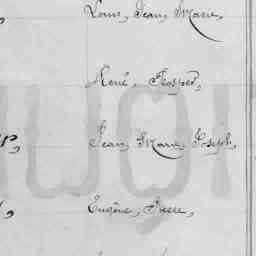 Louis, Jean, Marie,
René, Prosper,
Jean, Marie, Joseph,
Eugène, Pierre,